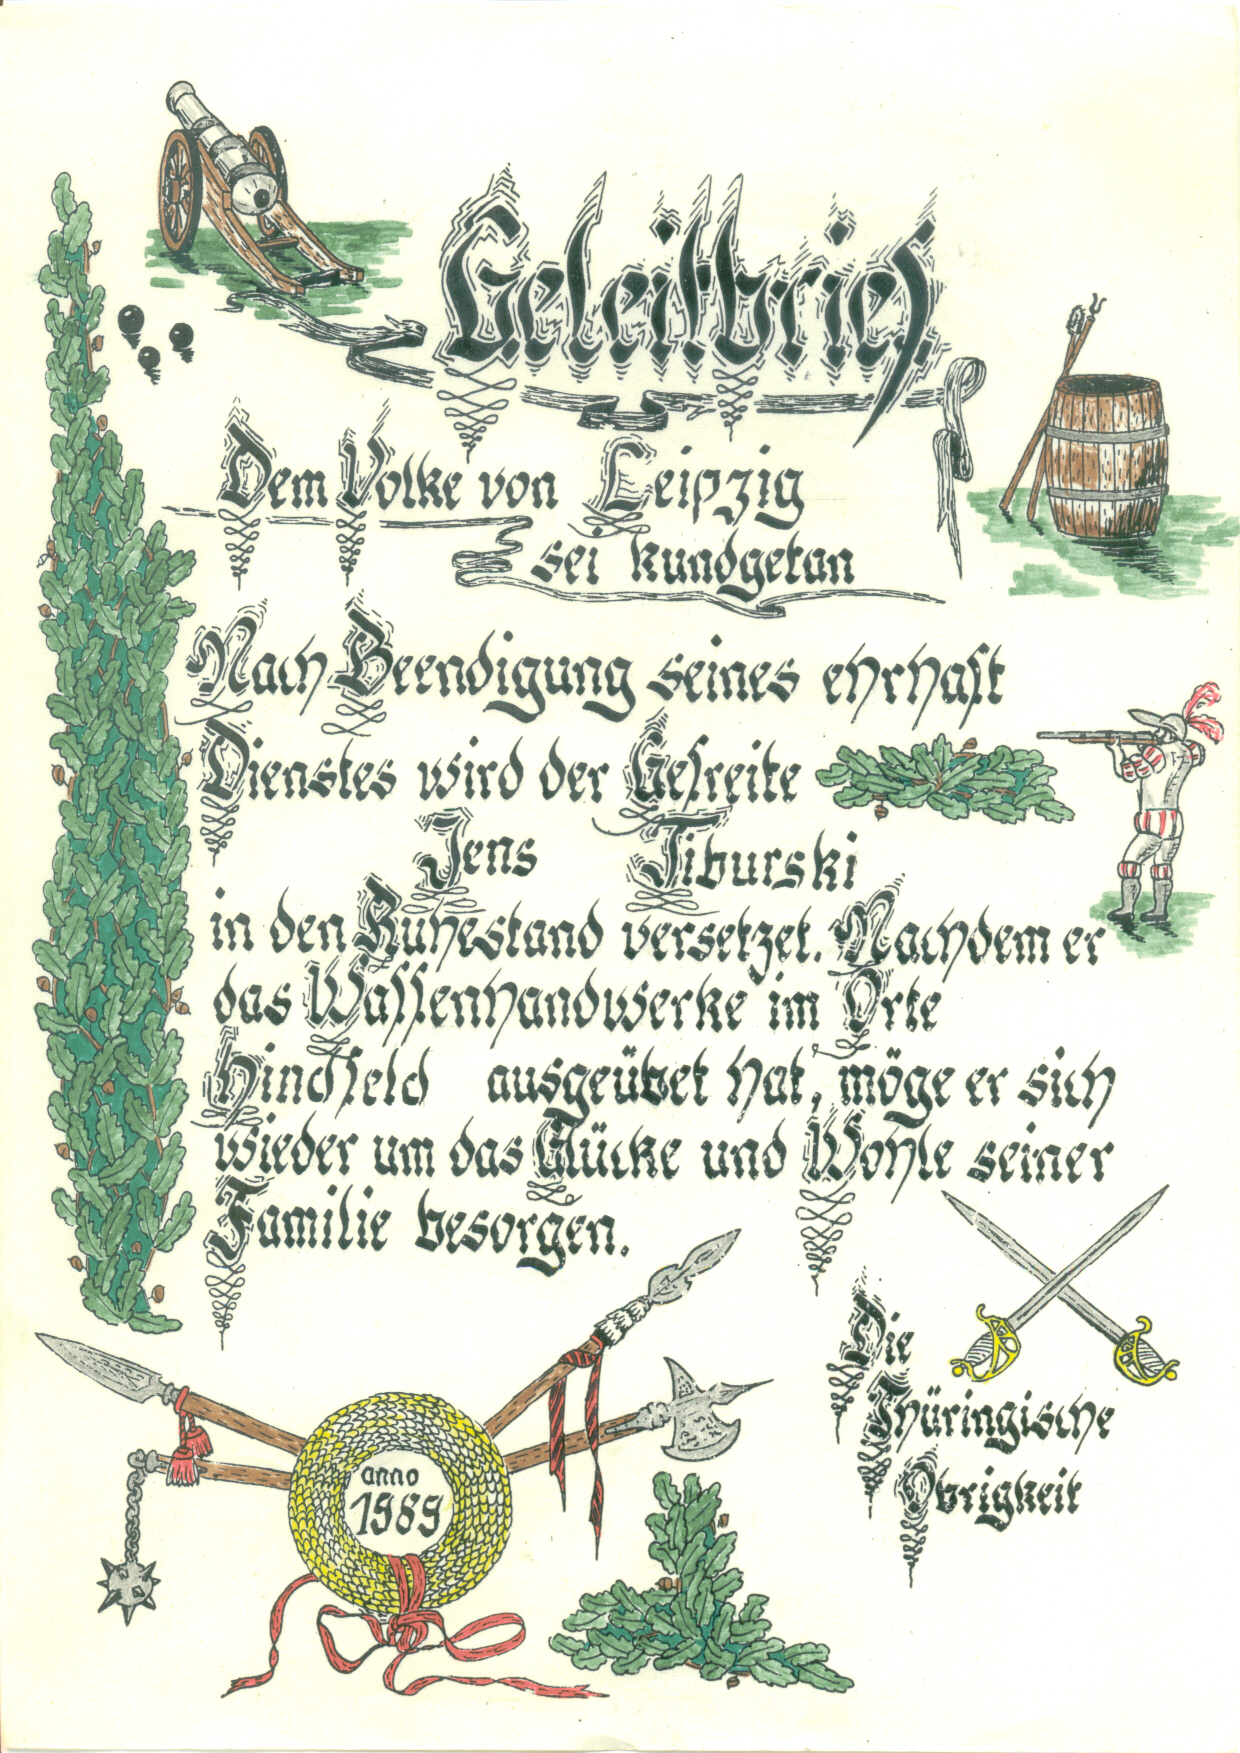 Geleitbrief
Dem Volke von Leipzig
sei kundgetan
Nach Beendigung seines ehrhaft
Dienstes wird der Gefreite
Jens Tiburski
in den Ruhestand versetzet. Nachdem er
das Waffenhandwerke im Orte
Hindfeld ausgeübet hat, möge er sich
wieder um das Glücke und Wohle seiner
Familie besorgen.
Die
Thüringische
Obrigkeit
anno
1989